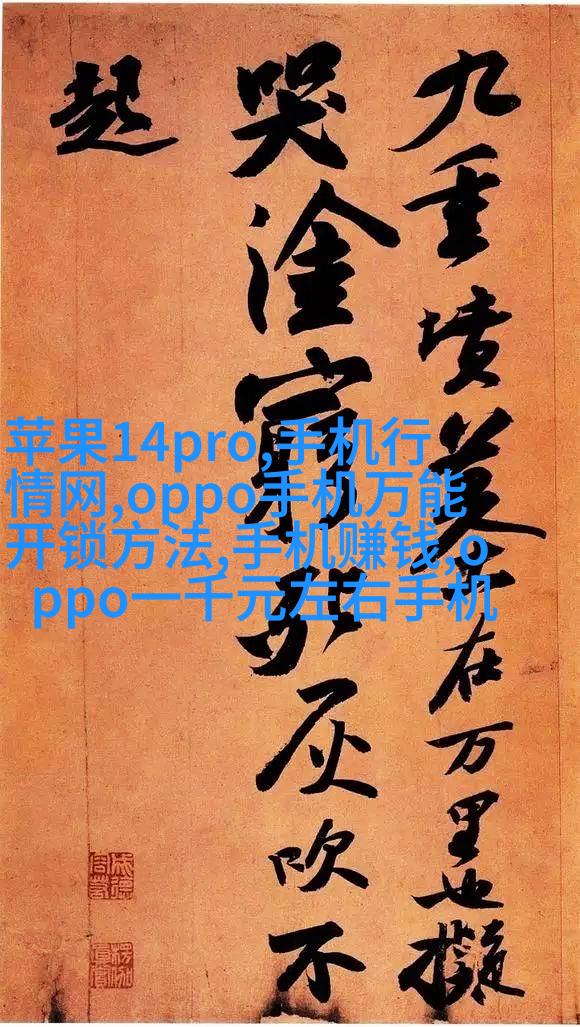 九重墳墓在万里也擬
哭塗窮死灰吹不
起
苹果14pro,手机行
情网,oppo手机万能
开锁方法,手机赚钱,o
ppo一千元左右手机